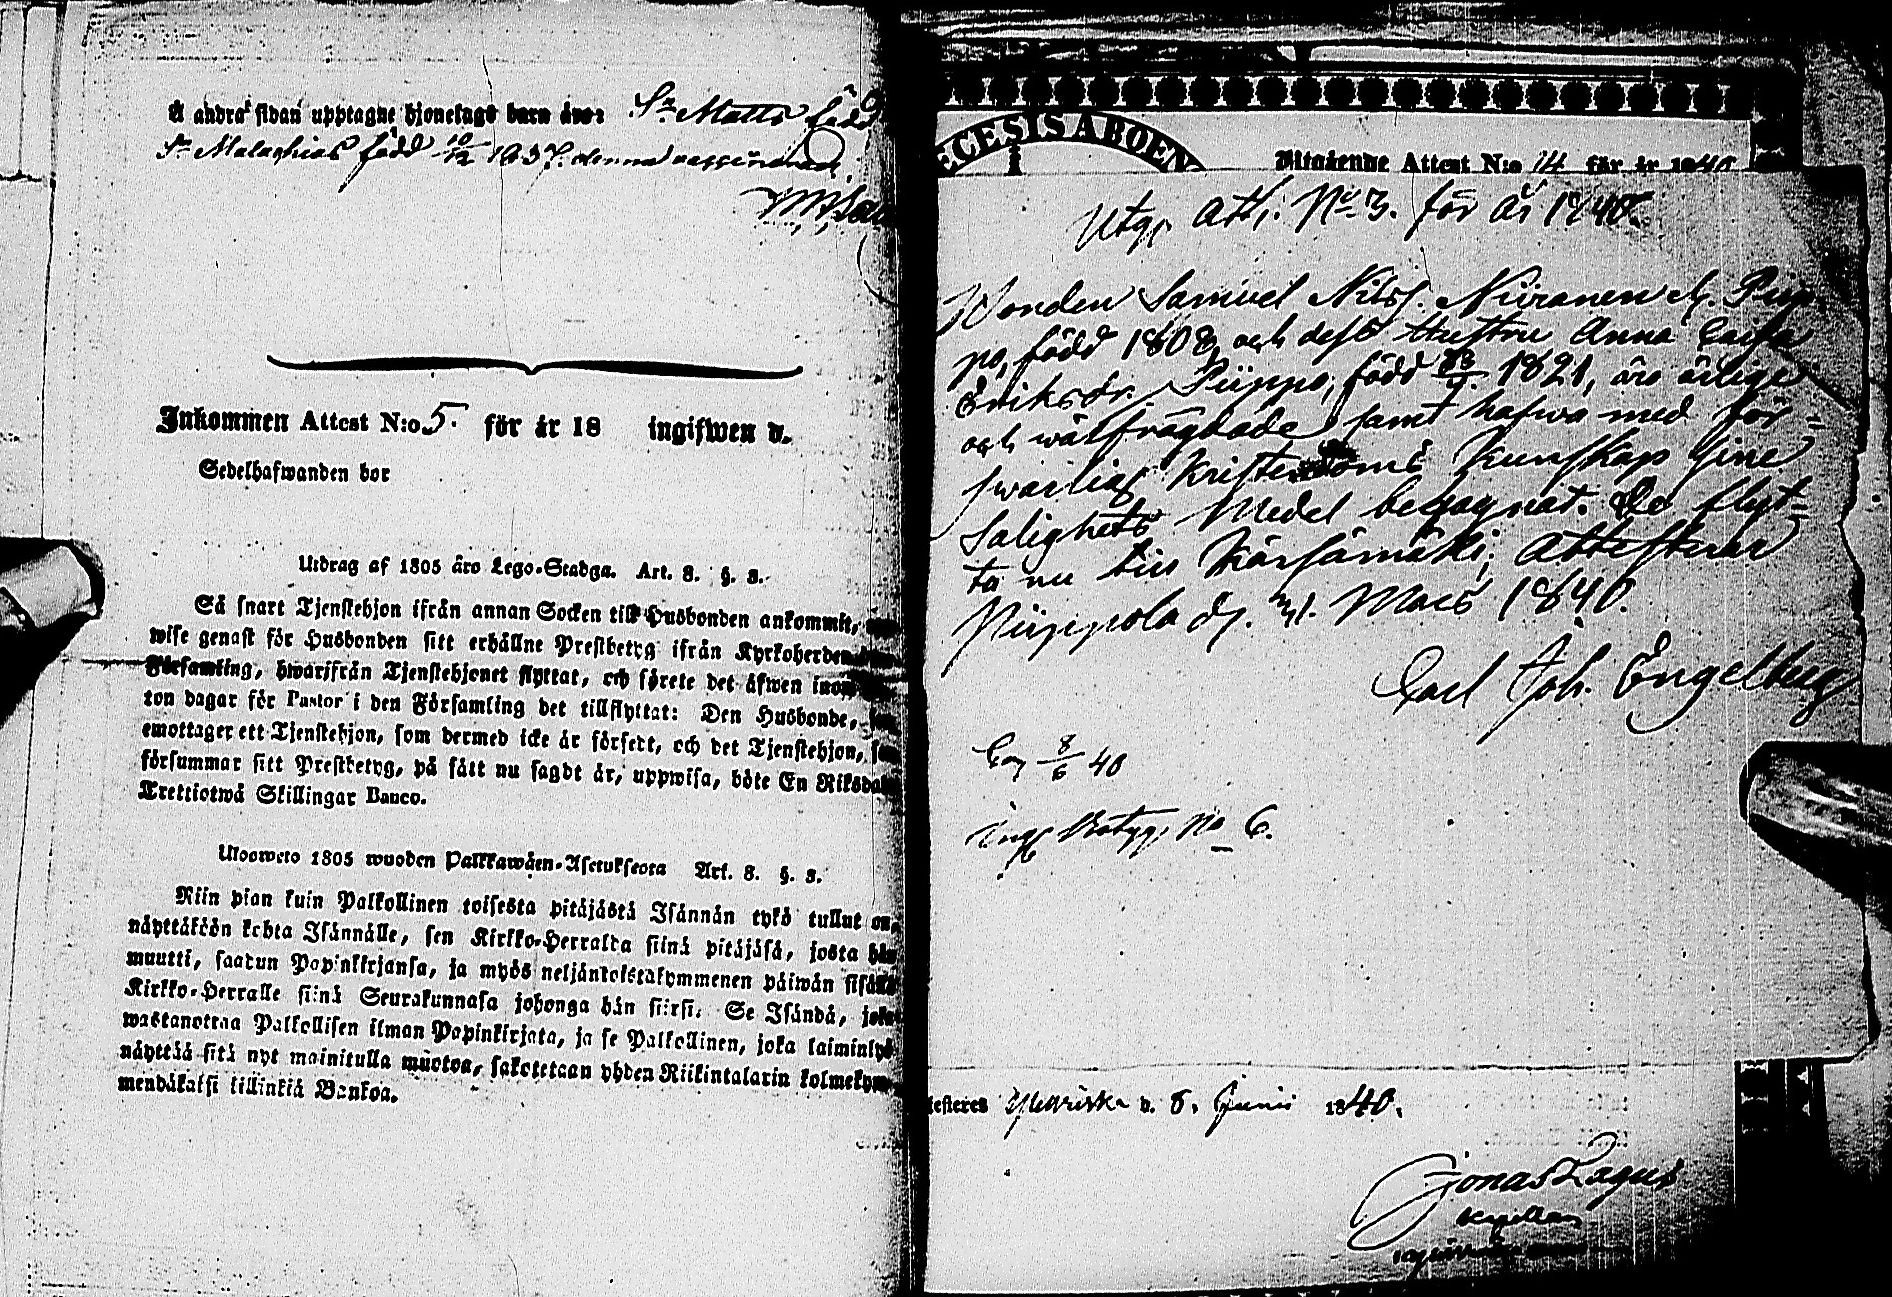 Å andra sidan upptagne hjonelags barn äro: Sn Matts född
Sn Malachias född 10/12 1837. denna vaccinerad.
Inkommen Attest N:o 5. för år 18 ingifwen d.
Sedelhafwanden bor
Utdrag af 1805 års Lego-Stadga. Art. 8. §. 3.
Så snart Tjenstehjon ifrån annan Socken till Husbonden ankommit,
wise genast för Husbonden sitt erhållne Prestbetyg ifrån Kyrkoherden
Församling, hwarifrån Tjenstehjonet flyttat, och förete det äfwen inom
ton dagar för Pastor i den Församling det tillflyttat: Den Husbonde,
emottager ett Tjenstehjon, som dermed icke är försedt, och det Tjenstehjon,
försummar sitt Prestbetyg, på sätt nu sagdt är, uppwisa, böte En Riksdal
Trettiotwå Skillingar Banco.
Ulosweto 1805 wuoden Palkkawäen-Asetuksesta Art. 8. §. 3.
Niin pian kuin Palkollinen toisesta pitäjästä Isännän tykö tullut on,
näyttäköön kohta Isännälle, sen Kirkko-Herralta siinä pitäjäsä, josta hän
muutti, saadun Papinkirjansa, ja myös neljäntoistakymmenen päiwän sisällä
Kirkko-Herralle siinä Seurakunnasa johonga hän siirsi. Se Isändä, joka
wastanottaa Palkollisen ilman Papinkirjata, ja se Palkollinen, joka laiminlyö
näyttää sitä nyt mainitulla muotoa, sakotetaan yhden Riikintalarin kolmekym
mendäkaksi killinkiä Bankoa.
ECESIS ABOEN
Utgående Attest N:o 14 för år 1840
Utg. Att. No 3. för år 1840.
Bonden Samuel Nilss. Niiranen el. Piip
po, född 1808, och dess Hustru Anna Caisa
Eriksdr. Piippo, född 1821, äro ärlige
och wälfrägdade samt hafwa med för=
swarlig Kristendoms Kunskap sine
Salighets Medel begagnat. De flyt=
ta nu till Kärsämäki; Attesterar
Piippola d. 31. Mars 1840.
Carl Joh. Engelberg
8/6 40
Betyg. No 6.
testeres Ylivieska d. 8. Junii 1840.
Jonas Lagus
Kapellan